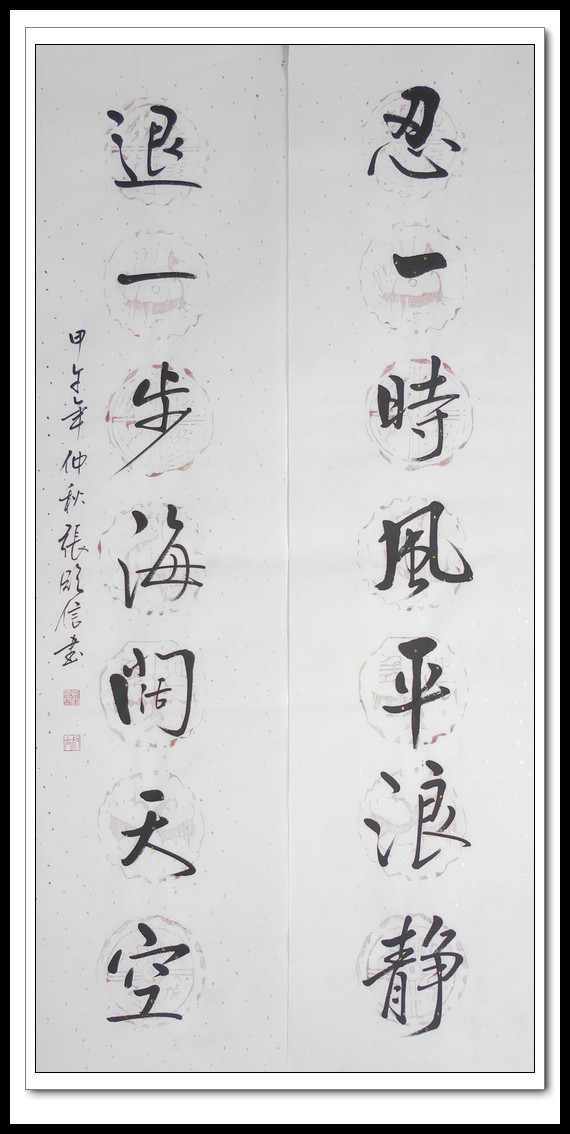 忍一時風平浪静
退一步海阔天空
甲午年仲秋張頤信書